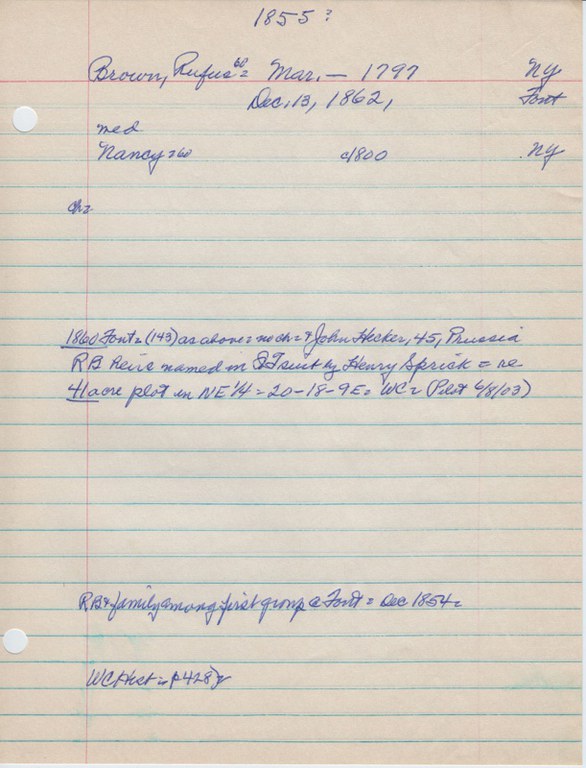 1855?
Brown, Rufus 60= Mar. — 1797 NY
Dec. 13, 1862, Font
med
Nancy =60 c1800 NY
ch=
1860 Font = (143) as above = no ch = & John Hecker, 45, Prussia
RB heirs named in QT suit by Henry Sprick = re
41 acre plot in NE¼ = 20-18-9E = WC = (Pilot 6/8/03)
RB & family among first group @ Font = Dec 1854 =
WC Hist = p428